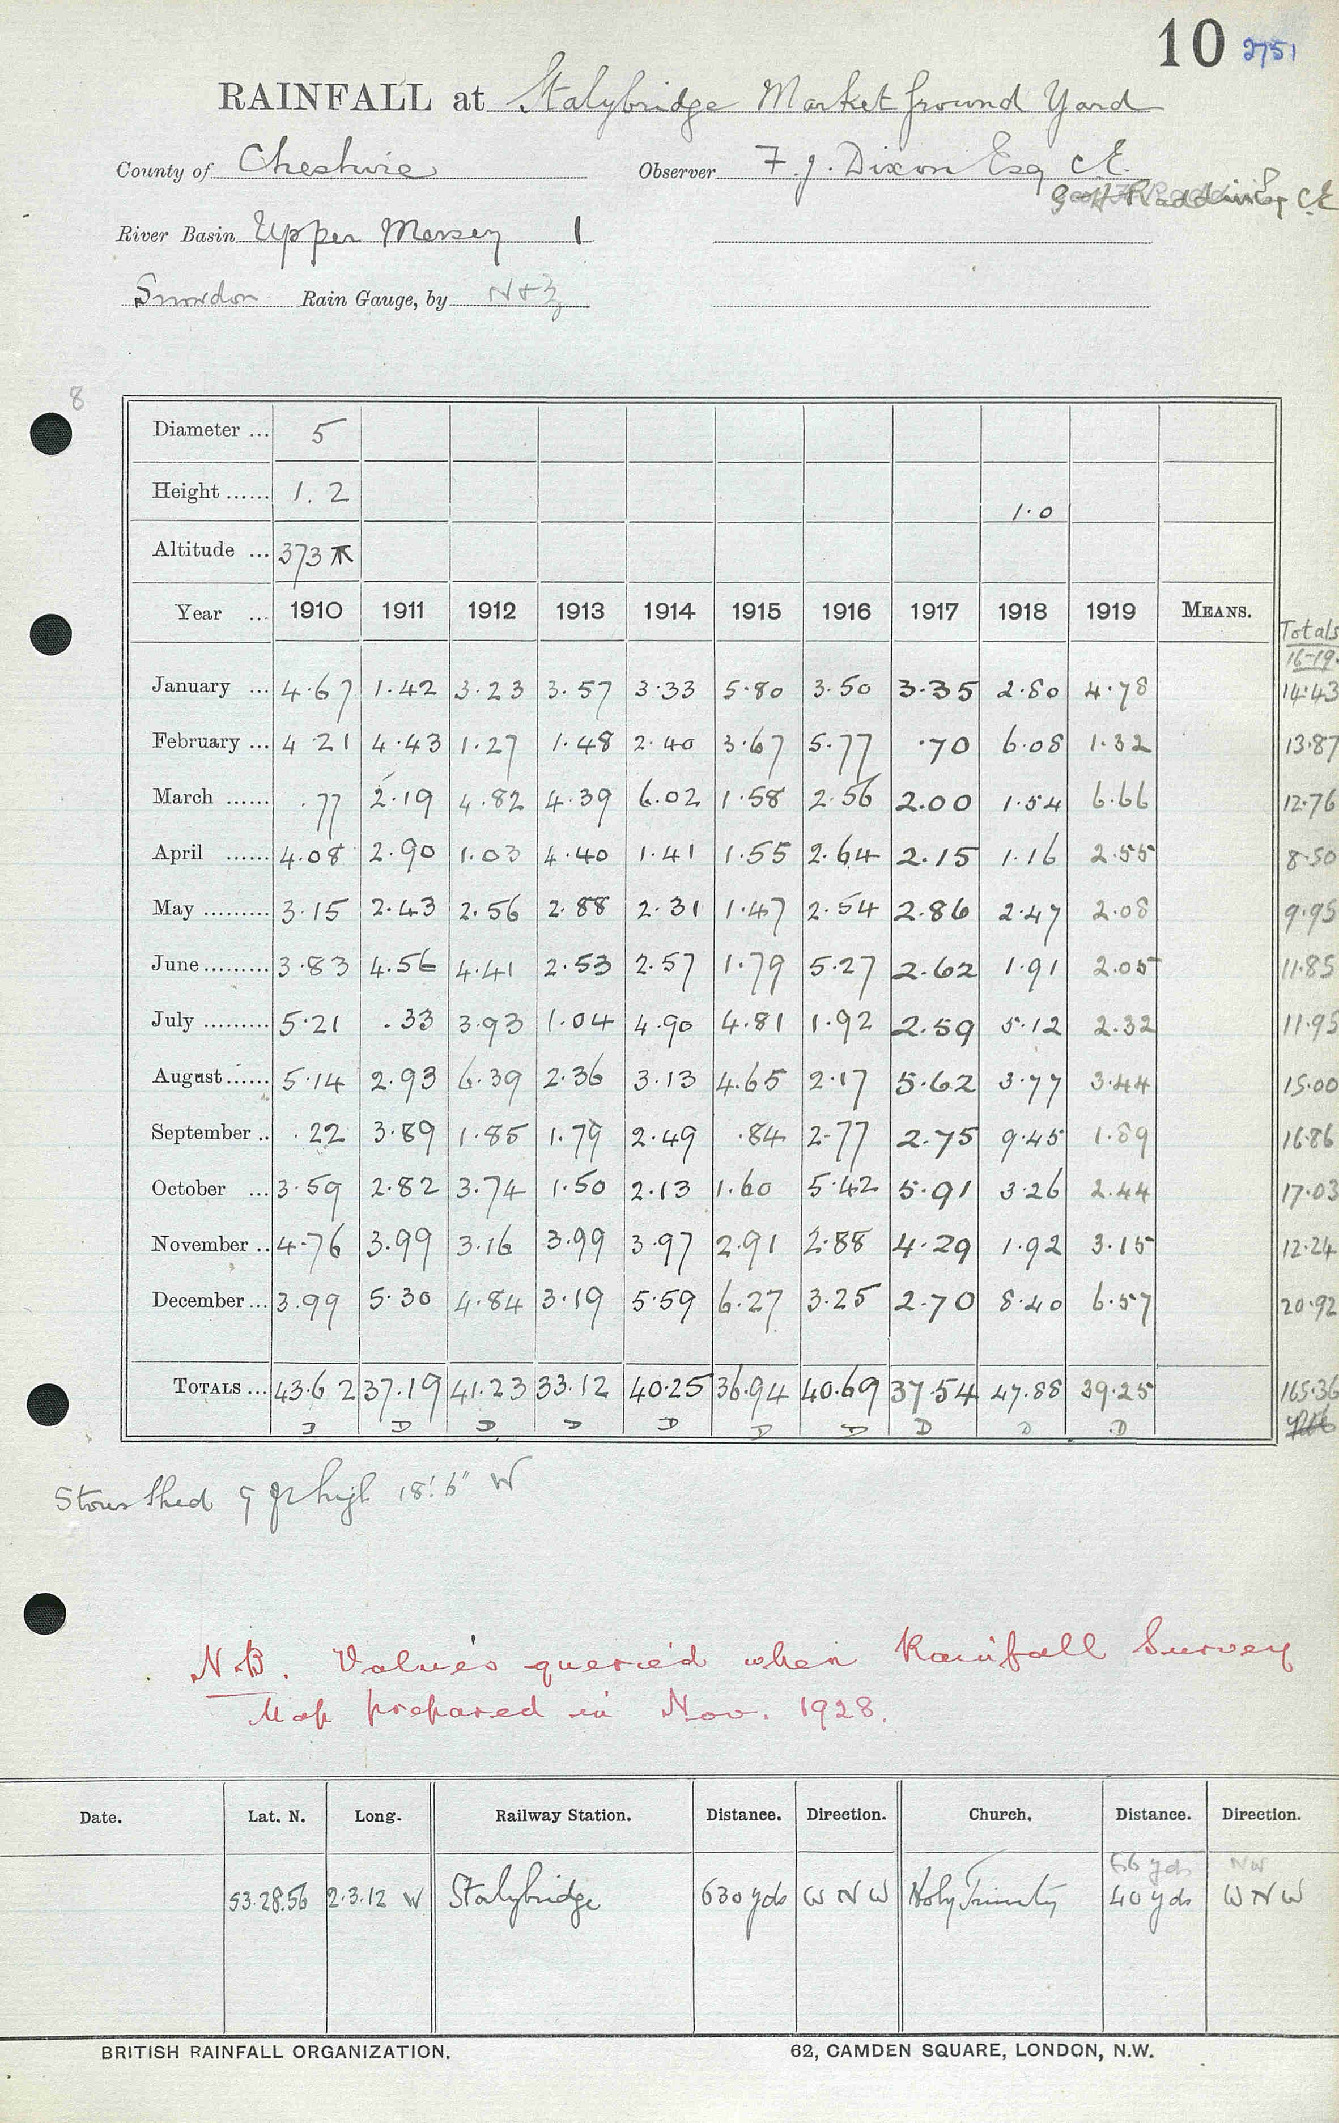 10 2751
RAINFALL at Stalybridge Market Ground Yard
County of Cheshire Observer F. J. Dixon Esq C.E.
C E
River Basin Upper Mersey 1
Snowdon Rain Gauge, by N & Z
8
Diameter ... 5
Height ...... 1.2 1.0
Altitude ... 373
Year ... 1910 1911 1912 1913 1914 1915 1916 1917 1918 1919 MEANS. Totals 16-19.
January ... 4.67 1.42 3.23 3.57 3.33 5.80 3.50 3.35 2.80 4.78 14.43
February ... 4.21 4.43 1.27 1.48 2.40 3.67 5.77 .70 6.08 1.32 13.87
March ...... .77 2.19 4.82 4.39 6.02 1.58 2.56 2.00 1.54 6.66 12.76
April ...... 4.08 2.90 1.03 4.40 1.41 1.55 2.64 2.15 1.16 2.55 8.50
May ......... 3.15 2.43 2.56 2.88 2.31 1.47 2.54 2.86 2.47 2.08 9.95
June ......... 3.83 4.56 4.41 2.53 2.57 1.79 5.27 2.62 1.91 2.05 11.85
July ......... 5.21 .33 3.93 1.04 4.90 4.81 1.92 2.59 5.12 2.32 11.95
August ...... 5.14 2.93 6.39 2.36 3.13 4.65 2.17 5.62 3.77 3.44 15.00
September .. .22 3.89 1.85 1.79 2.49 .84 2.77 2.75 9.45 1.89 16.86
October ... 3.59 2.82 3.74 1.50 2.13 1.60 5.42 5.91 3.26 2.44 17.03
November .. 4.76 3.99 3.16 3.99 3.97 2.91 2.88 4.29 1.92 3.15 12.24
December ... 3.99 5.30 4.84 3.19 5.59 6.27 3.25 2.70 8.40 6.57 20.92
TOTALS ... 43.62 37.19 41.23 33.12 40.25 36.94 40.69 37.54 47.88 39.25 165.36
D D D D D D D D D D
Shed high 18'.6" W
N.B. Values queried when Rainfall Survey
Map prepared in Nov. 1928.
Date. Lat. N. Long. Railway Station. Distance. Direction. Church. Distance. Direction.
66 yds NW
53.28.56 2.3.12 W Stalybridge 630 yds W N W Holy Trinity 40 yds W N W
BRITISH RAINFALL ORGANIZATION. 62, CAMDEN SQUARE, LONDON, N.W.